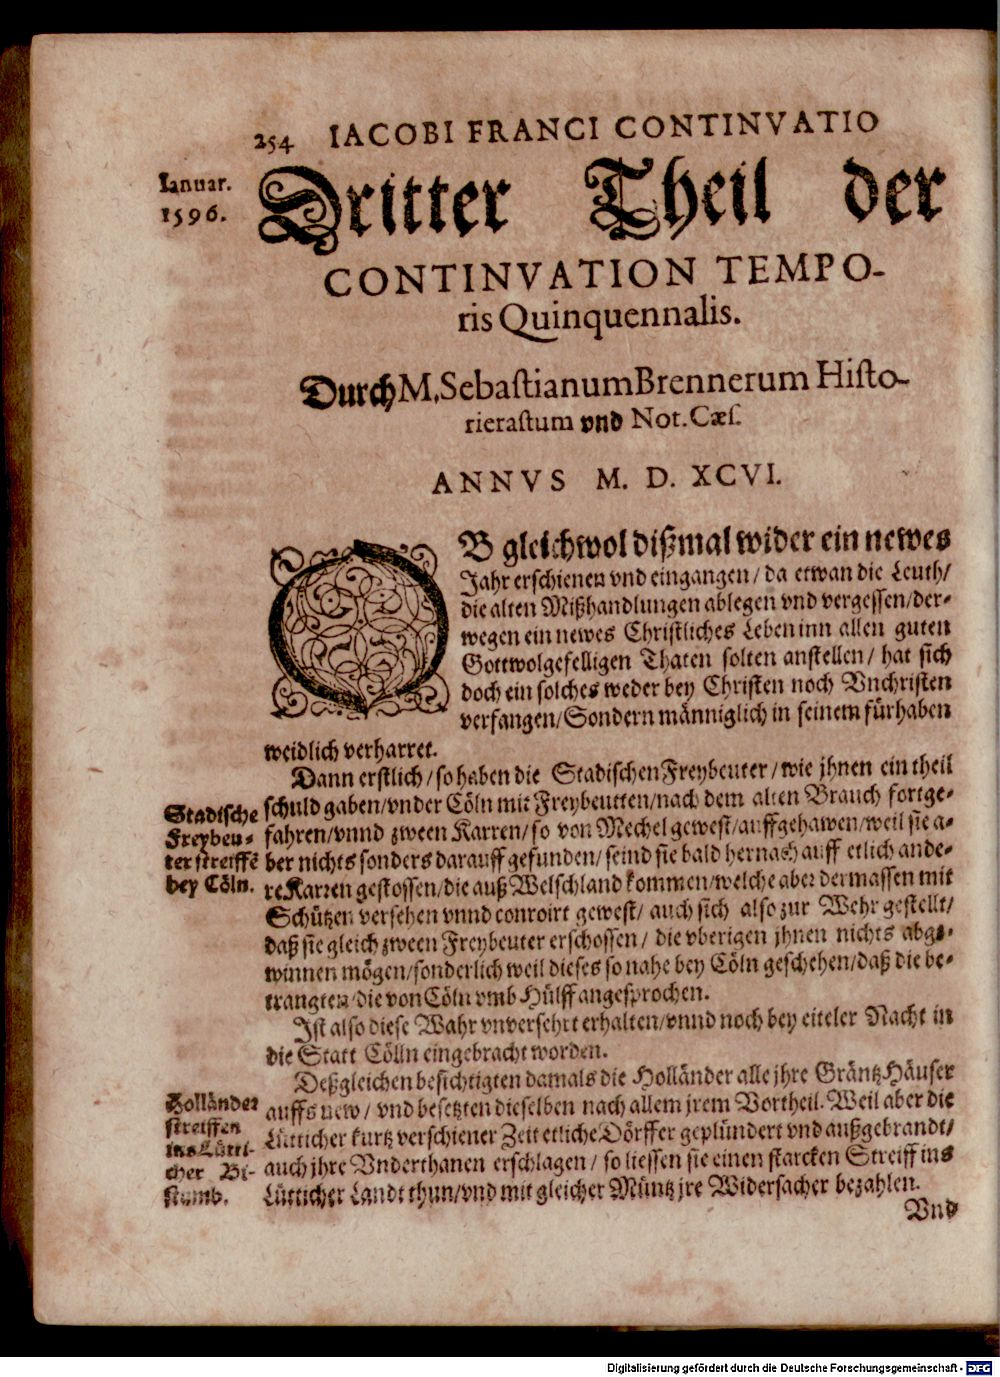 254 IACOBI FRANCI CONTINVATIO
Ianuar.
1596.
Dritter Theil der
CONTINVATION TEMPO-
ris Quinquennalis.
Durch M. Sebastianum Brennerum Histo-
rierastum vnd Not. Cæs.
ANNVS M. D. XCVI.
OB gleichwol dißmal wider ein newes
Jahr erschienen vnd eingangen / da etwan die Leuth /
die alten Mißhandlungen ablegen vnd vergessen / der-
wegen ein newes Christliches Leben inn allen guten
Gottwolgefelligen Thaten solten anstellen / hat sich
doch ein solches weder bey Christen noch Vnchristen
verfangen / Sondern männiglich in seinem fürhaben
weidlich verharret.
Dann erstlich / so haben die Stadischen Freybeuter / wie jhnen ein theil
schuld gaben / vnder Cöln mit Freybeutten / nach dem alten Brauch fortge-
fahren / vnnd zween Karren / so von Mechel gewest / auffgehawen / weil sie a-
ber nichts sonders darauff gefunden / seind sie bald hernach auff etlich ande-
re Karren gestossen / die auß Welschland kommen / welche aber dermassen mit
Schützen versehen vnnd conroirt gewest / auch sich also zur Wehr gestellt /
daß sie gleich zween Freybeuter erschossen / die vberigen jhnen nichts abge-
winnen mögen / sonderlich weil dieses so nahe bey Cöln geschehen / daß die be-
trangten / die von Cöln vmb Hülff angesprochen.
Stadische
Freybeu-
ter streiffē
bey Cöln.
Jst also diese Wahr vnversehrt erhalten / vnnd noch bey eiteler Nacht in
die Statt Cölln eingebracht worden.
Deßgleichen besichtigten damals die Holländer alle jhre Gräntz Häuser
auffs new / vnd besetzten dieselben nach allem jrem Vortheil. Weil aber die
Lütticher kurtz verschiener Zeit etliche Dörffer geplündert vnd außgebrandt /
auch jhre Vnderthanen erschlagen / so liessen sie einen starcken Streiff ins
Lütticher Landt thun / vnd mit gleicher Müntz jre Widersacher bezahlen.
Holländer
streiffen
ins Lütti-
cher Bi-
stumb.
Vnd
Digitalisierung gefördert durch die Deutsche Forschungsgemeinschaft - DFG